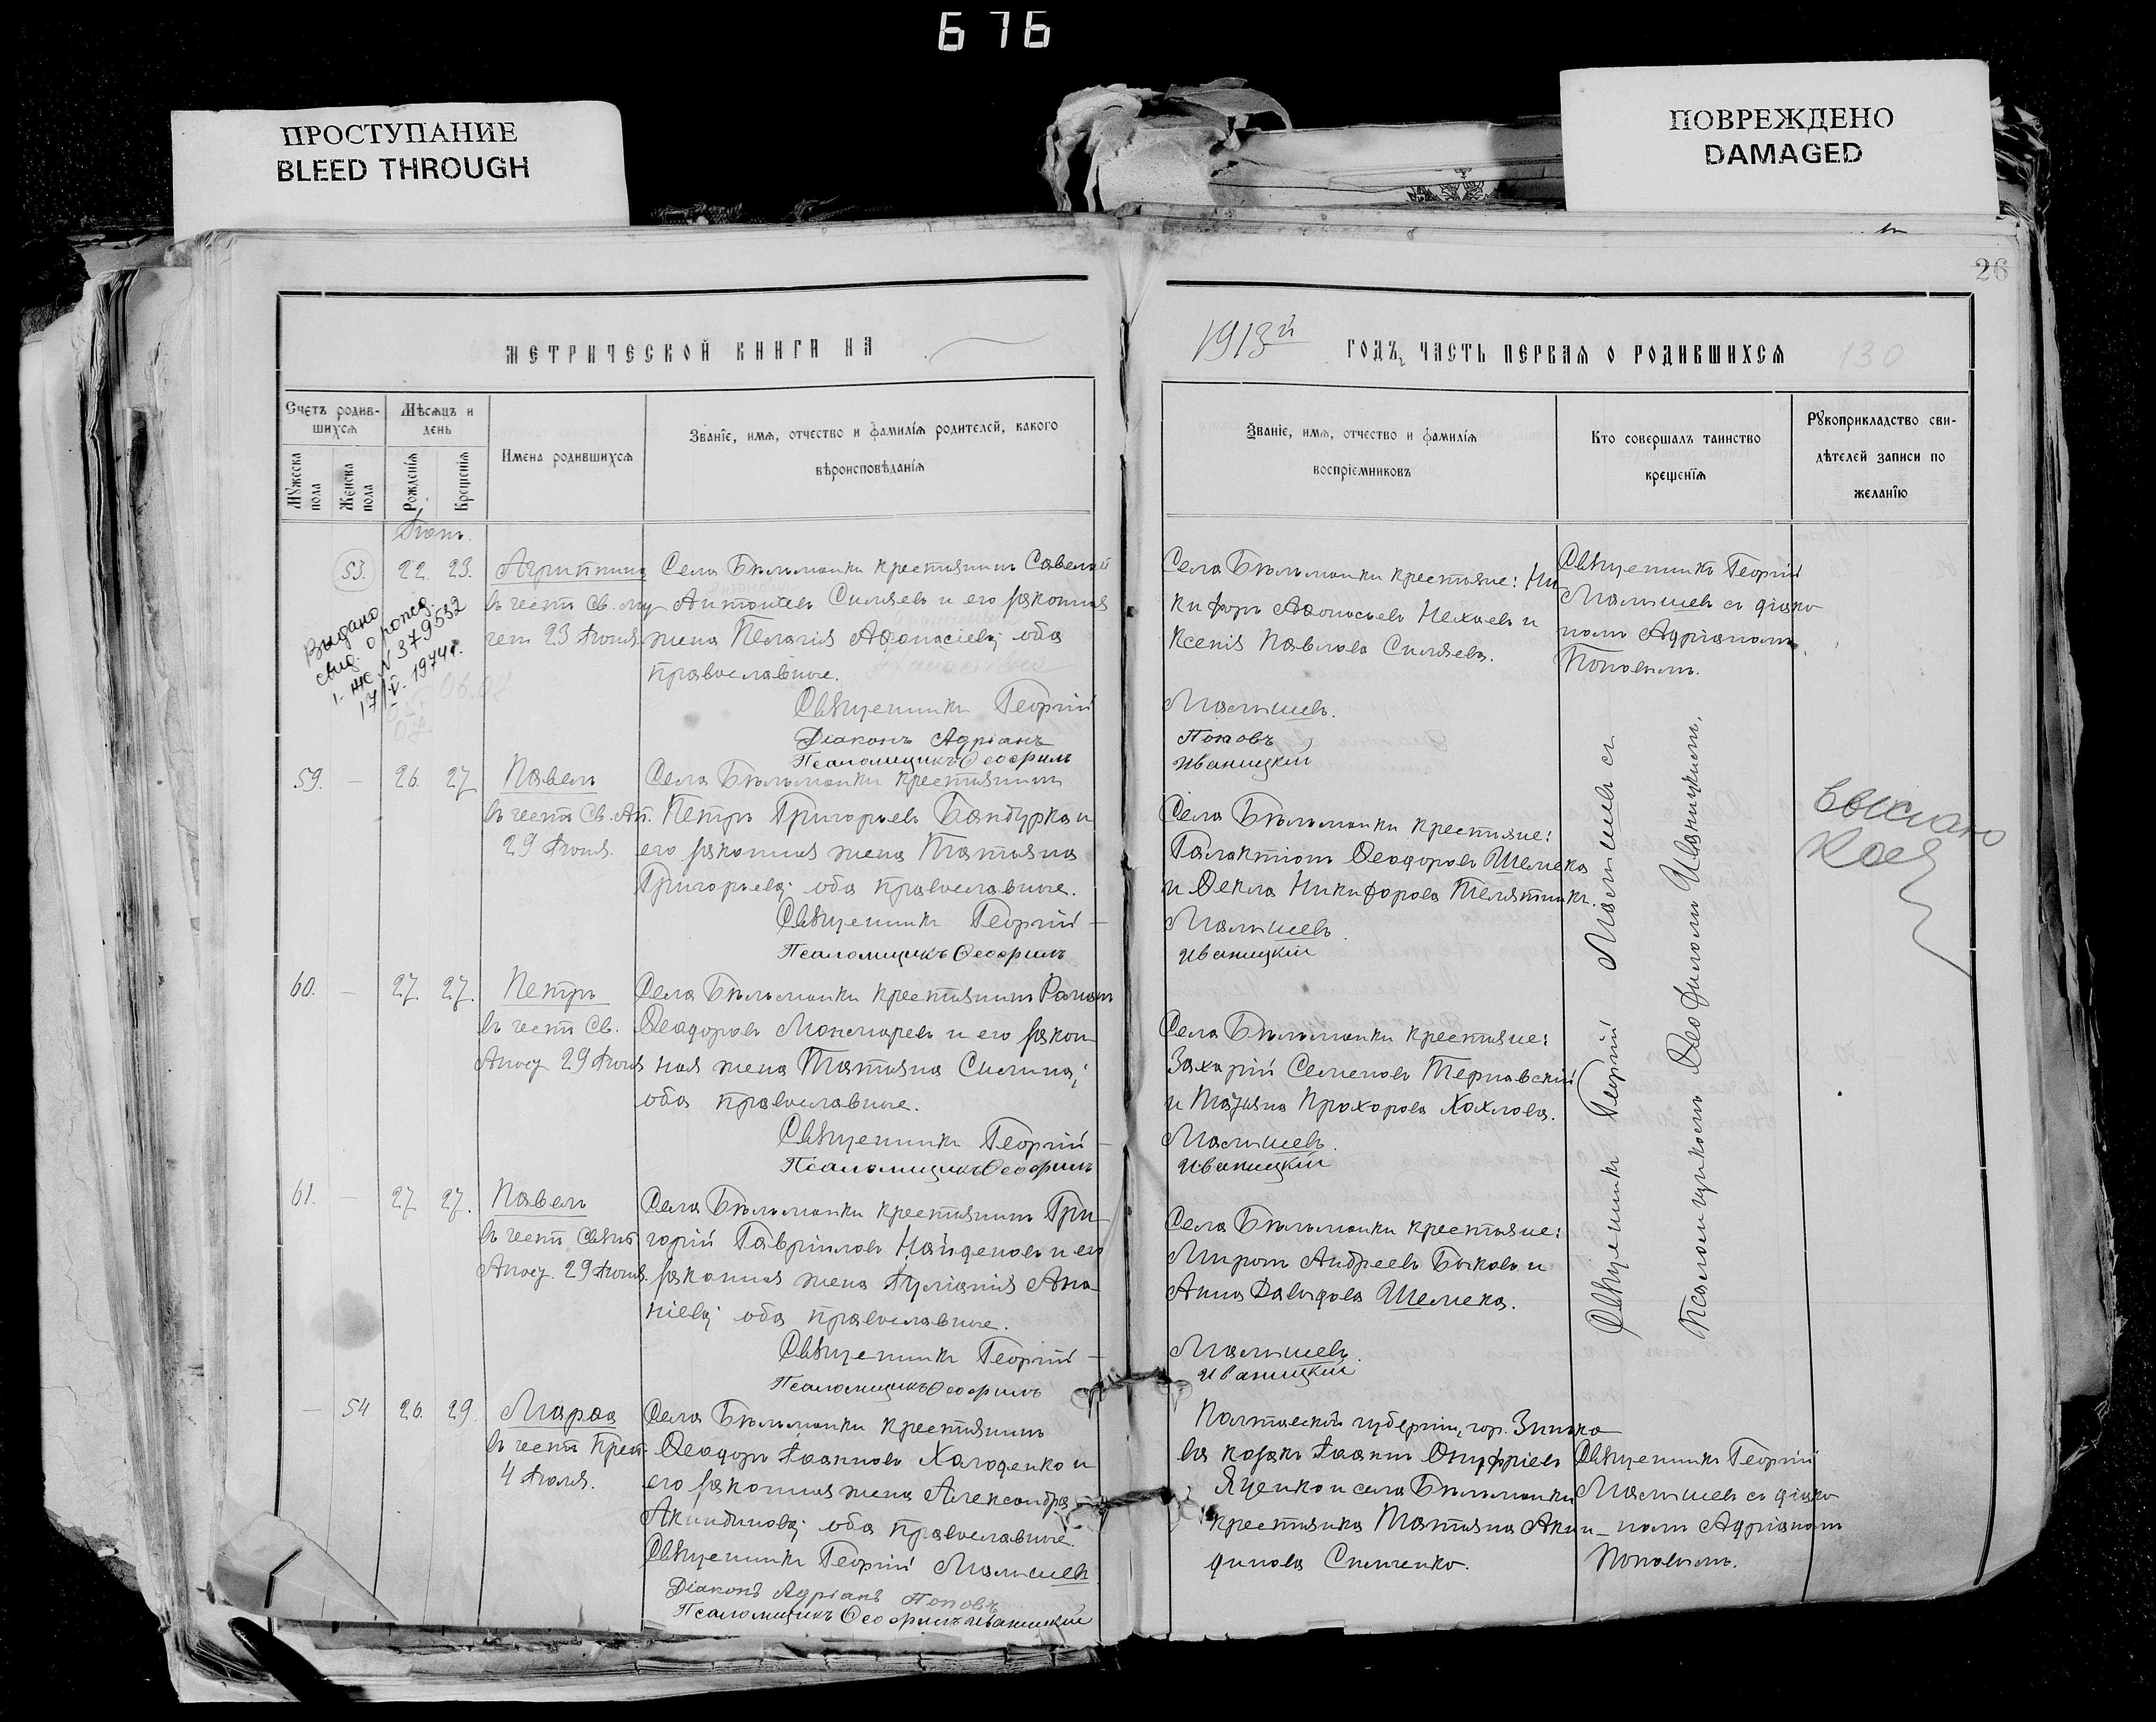 676
ПРОСТУПАНИЕ
BLEED THROUGH
ПОВРЕЖДЕНО
DAMAGED
26
МЕТРИЧЕСКОЙ КНИГИ НА
1913й ГОДЪ, ЧАСТЬ ПЕРВАЯ О РОДИВШИХСЯ
130
Счетъ родив-
шихся
Мѣсяцъ и
день
Мужеска
пола
Женска
пола
Рожденія
Крещенія
Имена родившихся
Званіе, имя, отчество и фамилія родителей, какого
вѣроисповѣданія
Званіе, имя, отчество и фамилія
воспріемниковъ
Кто совершалъ таинство
крещенія
Рукоприкладство сви-
дѣтелей записи по
желанію
Іюнь.
53. 22. 23. Агриппина
въ честь Св. му-
чен. 23 Іюня.
Выдано
свид. о рожд.
I-ЖС N 379532
17/V-1974г.
Села Бѣльманки крестьянинъ Савелій
Антоніевъ Силяевъ и его законная
жена Пелагія Афанасіева; оба
православные.
Священникъ Георгій
Діаконъ Адріанъ
Псаломщикъ Ѳеофилъ
Села Бѣльманки крестьяне: Ни-
кифоръ Афонасьевъ Нехаевъ и
Ксенія Павлова Силяева.
Малышевъ.
Поповъ
Иваницкій
Священникъ Георгій
Малышевъ съ діако-
номъ Адріаномъ
Поповымъ.
59. — 26. 27. Павелъ
въ честь Св. Ап.
29 Іюня.
Села Бѣльманки крестьянинъ
Петръ Григорьевъ Бандурка и
его законная жена Татьяна
Григорьева; оба православные.
Священникъ Георгій —
Псаломщикъ Ѳеофилъ
Села Бѣльманки крестьяне:
Галактіонъ Ѳеодоровъ Шемека
и Ѳекла Никифорова Телятникъ.
Малышевъ.
Иваницкій
выслано
60. — 27. 27. Петръ
въ честь Св.
Апос. 29 Іюня
Села Бѣльманки крестьянинъ Романъ
Ѳеодоровъ Мокогаревъ и его закон-
ная жена Татьяна Силина;
оба православные.
Священникъ Георгій —
Псаломщикъ Ѳеофилъ
Села Бѣльманки крестьяне:
Захарій Семеновъ Тернавскій
и Татьяна Прохорова Хохлова.
Малышевъ.
Иваницкій
Священникъ Георгій Малышевъ съ
Псаломщикомъ Ѳеофиломъ Иваницкимъ.
61. — 27. 27. Павелъ
въ честь Свят.
Апос. 29 Іюня.
Села Бѣльманки крестьянинъ Гри-
горій Гавріиловъ Найденовъ и его
законная жена Іуліанія Ана-
ніева; оба православные.
Священникъ Георгій —
Псаломщикъ Ѳеофилъ
Села Бѣльманки крестьяне:
Миронъ Андреевъ Быковъ и
Анна Давыдова Шемека.
Малышевъ.
Иваницкій
— 54 26. 29. Марѳа
въ честь Преп.
4 Іюля.
Села Бѣльманки крестьянинъ
Ѳеодоръ Іоанновъ Холоденко и
его законная жена Александра
Акиндинова; оба православные.
Священникъ Георгій Малышевъ
Діаконъ Адріанъ Поповъ
Псаломщикъ Ѳеофилъ Иваницкій
Полтавской губерніи, гор. Зинько-
ва козакъ Іоаннъ Онуфріевъ
Яценко и села Бѣльманки
крестьянка Татьяна Акин-
динова Симченко.
Священникъ Георгій
Малышевъ съ діако-
номъ Адріаномъ
Поповымъ.